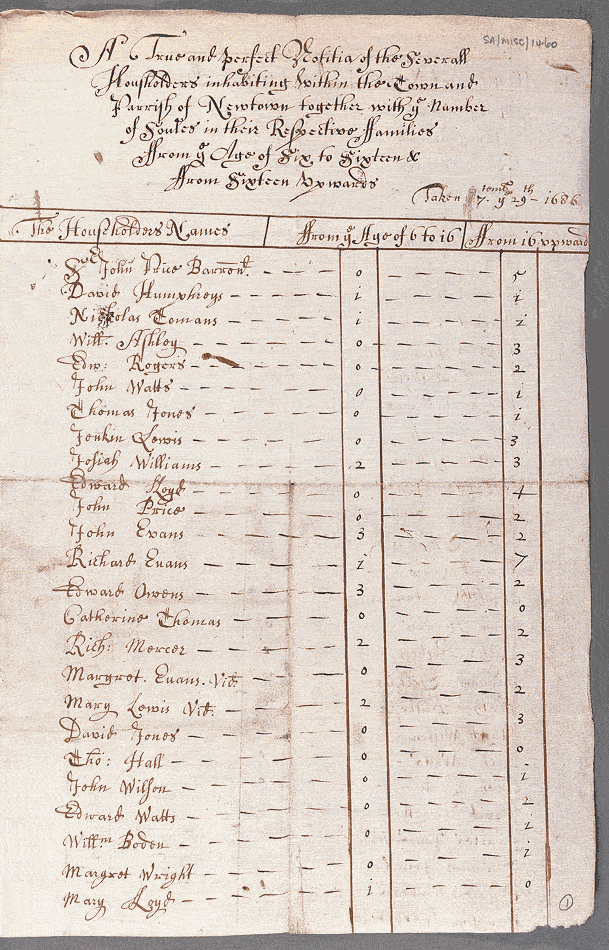 SA/MISC/1460
A True and perfect Notitia of the Severall
Housholders inhabiting Within the Town and
Parrish of Newtown together with yᵉ Number
of Soules in their Respective ffamilies
ffrom yᵉ Age of Six to Sixteen &
ffrom Sixteen Upwards
Taken 7temb yᵉ 29th - 1686
The Householders Names ffrom yᵉ Age of 6 to 16 ffrom 16 upward
John Price Barronᵗ 0 5
David Humphreys i i
Nickolas Tomans i i
Will: Ashley 0 3
Edw: Rogers 0 2
John Watts 0 i
Thomas Jones 0 i
Jenkin Lewis 0 3
Josiah Williams 2 3
Edward Lloyd 0 4
John Price 0 2
John Evans 3 2
Richard Evans i 7
Edward Owens 3 2
Catherine Thomas 0 0
Rich: Mercer 2 2
Margret. Evans. Vid: 0 3
Mary Lewis Vid: 2 2
David Jones 0 3
Tho: Hall 0 0
John Wilson 0 i
Edward Watts 0 2
Willᵐ Boden 0 i
Margret Wright 0 i
Mary Loyd i 0
1